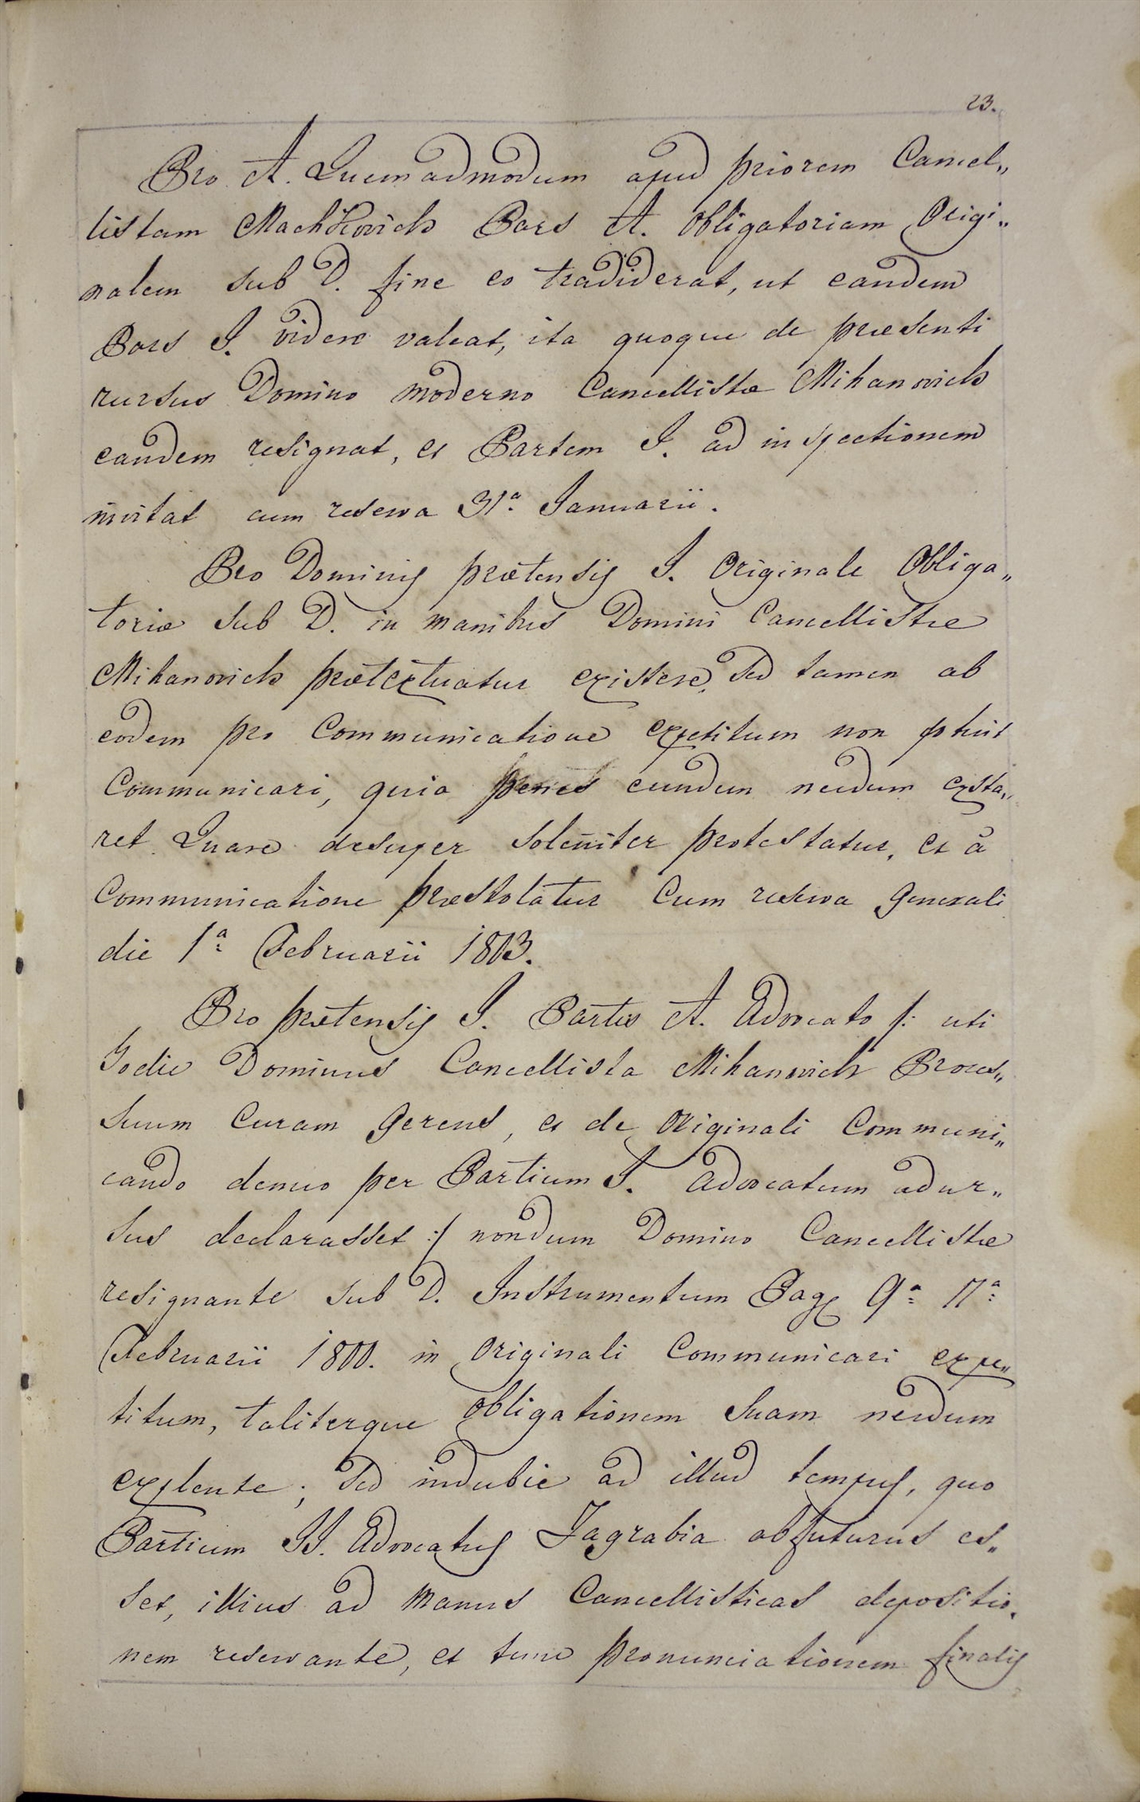 23.
Pro A. Quemadmodum apud priorem Cancel„
listam Machkovich Pars A. Obligatoriam Origi„
nalem sub D. fine eo tradiderat, ut eandem
Pars I. videre valeat, ita quoque de præsenti
rursus Domino moderno Cancellistæ Mihanovich
eandem resignat, et Partem I. ad inspectionem
invitat cum reserva 31ª Januarii.
Pro Dominis prætensis I. Originale Obliga„
toriæ sub D. in manibus Domini Cancellistæ
Mihanovich prætextuatur existere, sed tamen ab
eodem pro Communicatione expetitum non potuit
Communicari, quia penes eundem necdum exsta„
ret. Quare desuper soleñiter protestatur, et a
Communicatione præstolatur Cum reserva generali
die 1ª Februarii 1803.
Pro prætensis I. Partis A. Advocato /: uti
hodie Dominus Cancellista Mihanovich Proces„
suum Curam gerens, et de Originali Communi„
cando denuo per Partium I. Advocatum adur„
sus declarasset :/ nondum Domino Cancellistæ
resignante sub D. Instrumentum Pag. 9ª 17ª
Februarii 1800. in Originali Communicari expe„
titum, taliterque obligationem suam necdum
explente; sed indubie ad illud tempus, quo
Partium II. Advocatus Zagrabia abfuturus es„
set, illius ad manus Cancellisticas depositio„
nem reservante, et tunc pronunciationem finalis